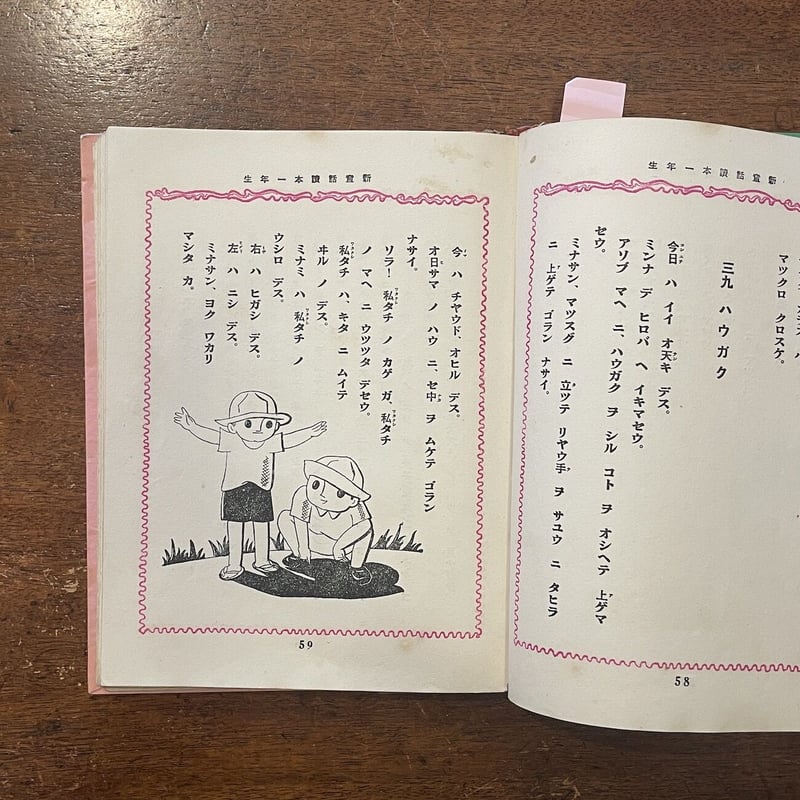 新童話讀本一年生
マツクロ クロスケ。
三九 ハウガク
今日 ハ イイ オ天キ デス。
ミンナ デ ヒロバ ヘ イキマセウ。
アソブ マヘ ニ、ハウガク ヲ シル コト ヲ オシヘテ 上ゲマ
セウ。
ミナサン、マツスグ ニ 立ツテ リヤウ手 ヲ サユウ ニ タヒラ
ニ 上ゲテ ゴラン ナサイ。
58
新童話讀本一年生
今 ハ チヤウド、オヒル デス。
オ日サマ ノ ハウ ニ、セ中 ヲ ムケテ ゴラン
ナサイ。
ソラ! 私タチ ノ カゲ ガ、私タチ
ノ マヘ ニ ウツツタ デセウ。
私タチ ハ、キタ ニ ムイテ
ヰル ノ デス。
ミナミ ハ 私タチ ノ
ウシロ デス。
右 ハ ヒガシ デス。
左 ハ ニシ デス。
ミナサン、ヨク ワカリ
マシタ カ。
59